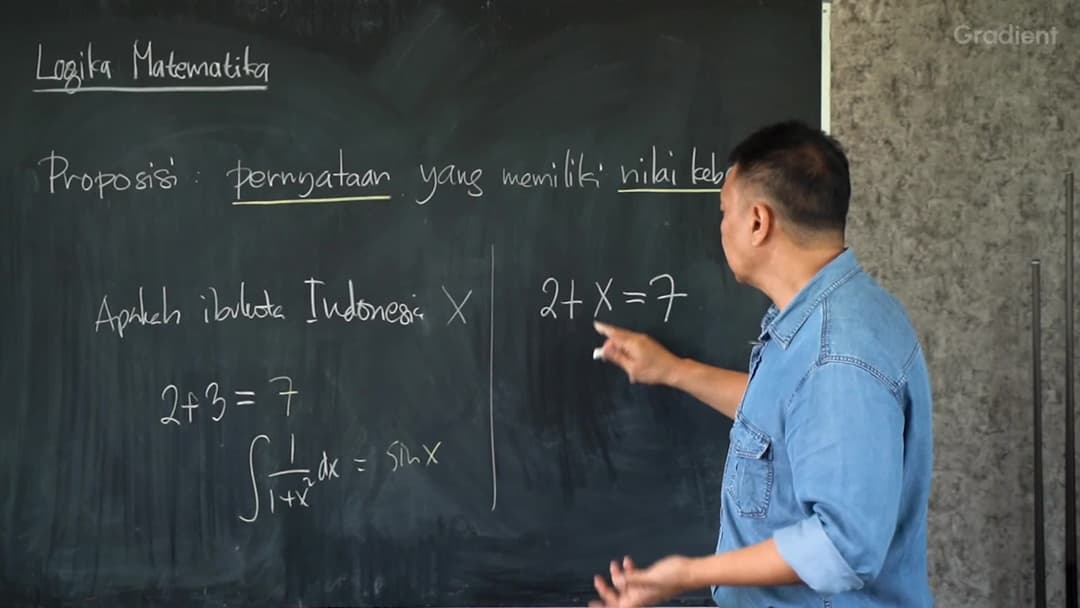 Gradient
Logika Matematika
Proposisi : pernyataan yang memiliki nilai keb
Apakah ibukota Indonesia X
2+3 = 7
∫ 1/(1+x²) dx = sin x
2+ X = 7